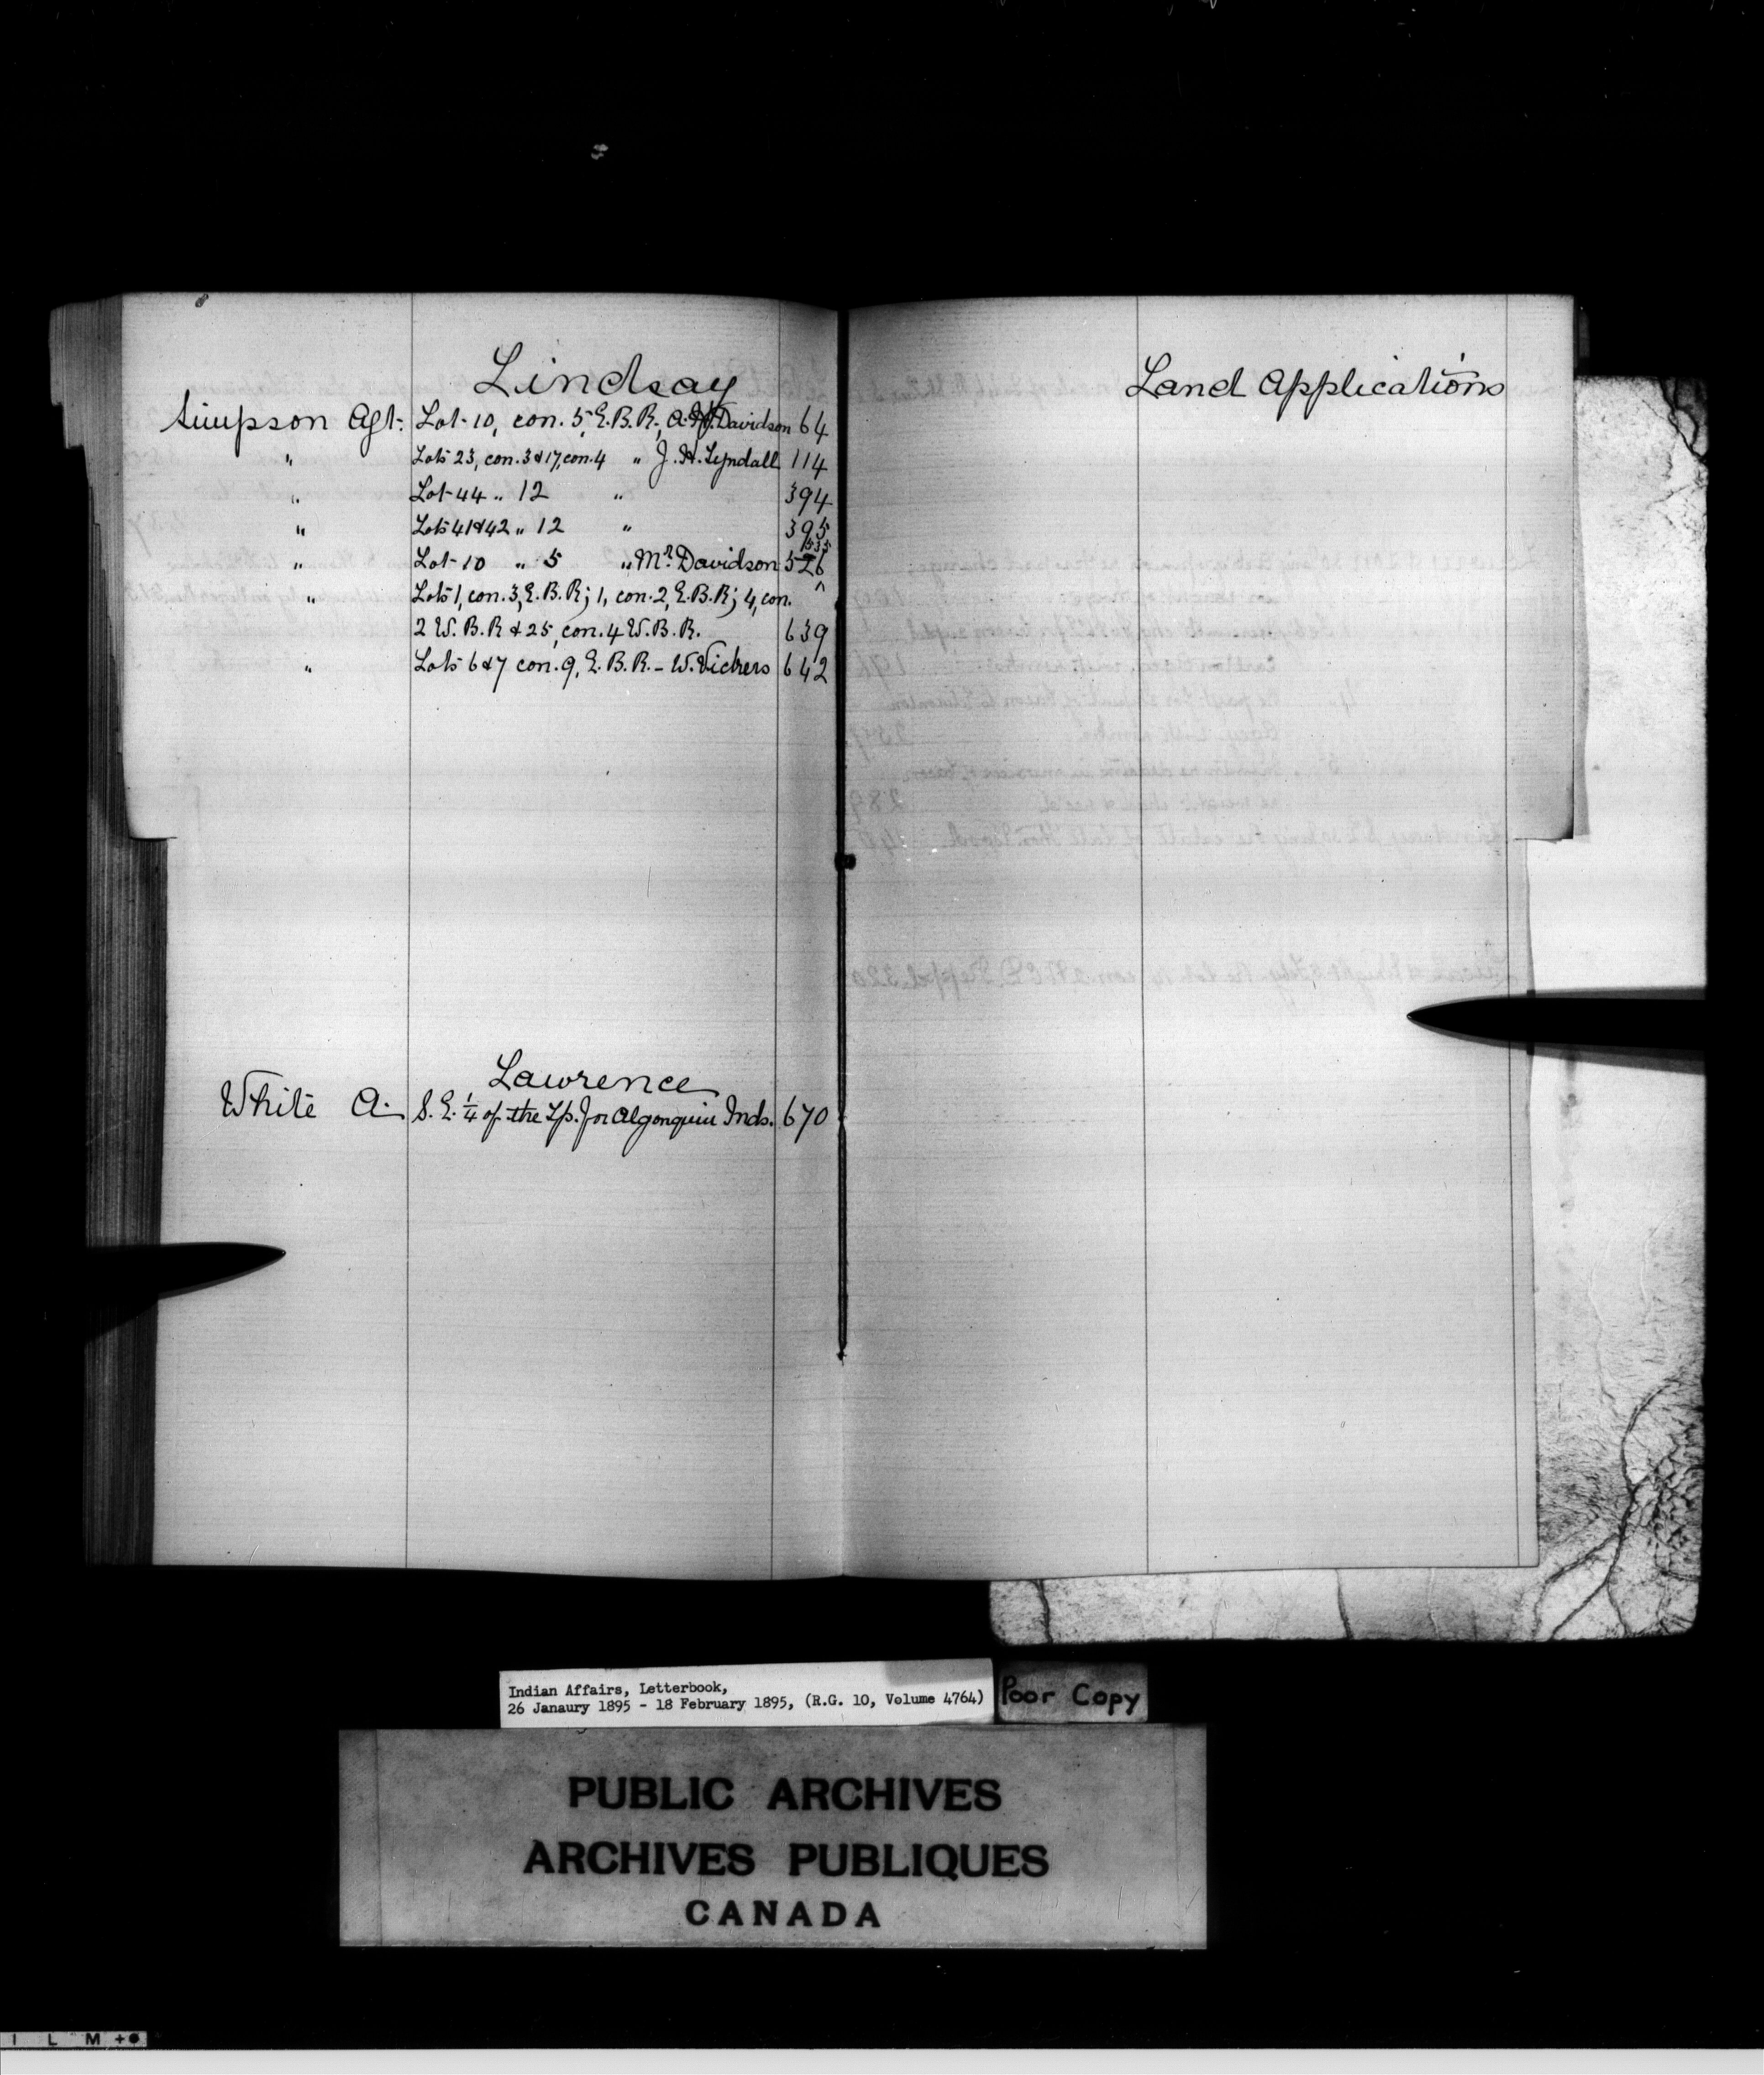 Lindsay
Simpson Agt. Lot 10, con. 5, E.B.R., A. Davidson 64
" Lots 23, con. 3 & 17, con. 4 " J. H. Lyndall 114
" Lot 44 " 12 " 394
" Lots 41 & 42 " 12 " 395
535
" Lot 10 " 5 " Mr. Davidson 526
" Lots 1, con. 3, E.B.R; 1, con. 2, E.B.R; 4, con. ^
2 W.B.R & 25, con. 4 W.B.R. 639
" Lots 6 & 7 con. 9, E.B.R. - W. Vickers 642
Lawrence
White A. S.E. ¼ of the Tp. for Algonquin Inds. 670
Land Applications
Indian Affairs, Letterbook,
26 Janaury 1895 - 18 February 1895, (R.G. 10, Volume 4764)
Poor Copy
PUBLIC ARCHIVES
ARCHIVES PUBLIQUES
CANADA
I L M +●